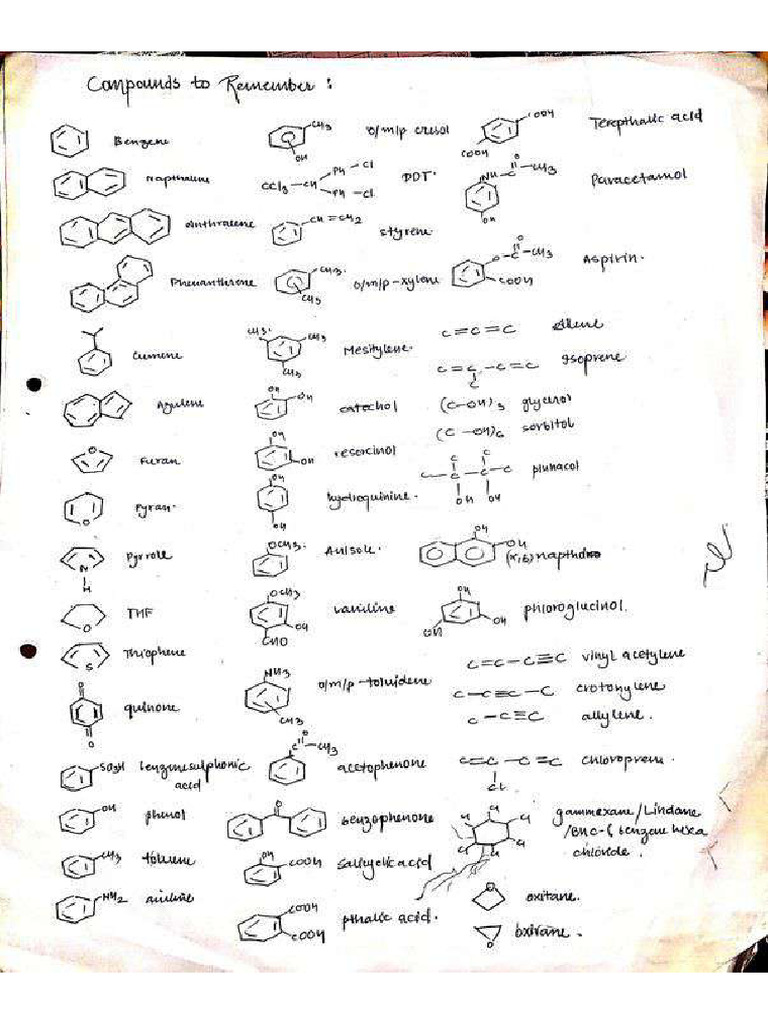 Compounds to Remember :
Benzene
Napthalene
Anthralene
Phenanthrene
Cumene
Azulene
Furan
O
Pyran.
O
Pyrrole
N
H
THF
O
Thiophene
S
quinone
O
O
SO3H benzenesulphonic
acid
OH phenol
CH3 toluene
NH2 aniline
CH3 o/m/p cresol
OH
Ph - Cl
CCl3 - CH DDT.
Ph - Cl
CH = CH2
styrene
CH3. o/m/p - xylene
CH3
CH3. CH3
Mesitylene.
CH3
OH
OH catechol
OH
OH resorcinol
OH
hydroquinine.
OH
OCH3. Anisole.
OCH3
vaniline
OH
CHO
NH3
o/m/p - toluidene
CH3
O
C - CH3
acetophenone
O
benzophenone
OH
COOH salicylic acid
COOH
COOH pthalic acid.
COOH Terepthalic acid
COOH
O
NH - C - CH3
Paracetamol
OH
O
O - C - CH3
COOH Aspirin.
C = C = C allene
C = C - C = C isoprene
C
(C - OH)3 glycerol
(C - OH)6 sorbitol
C C
C - C - C - C
OH OH
OH
OH
OH
OH
OH
phloroglucinol.
C = C - C ≡ C vinyl acetylene
C - C ≡ C - C crotonylene
C - C ≡ C allylene.
C = C - C = C chloroprene.
Cl
Cl Cl
Cl Cl
Cl Cl
gammexane / Lindane
/ BHC - 6 benzene hexa
chloride.
O oxitane.
O oxirane.